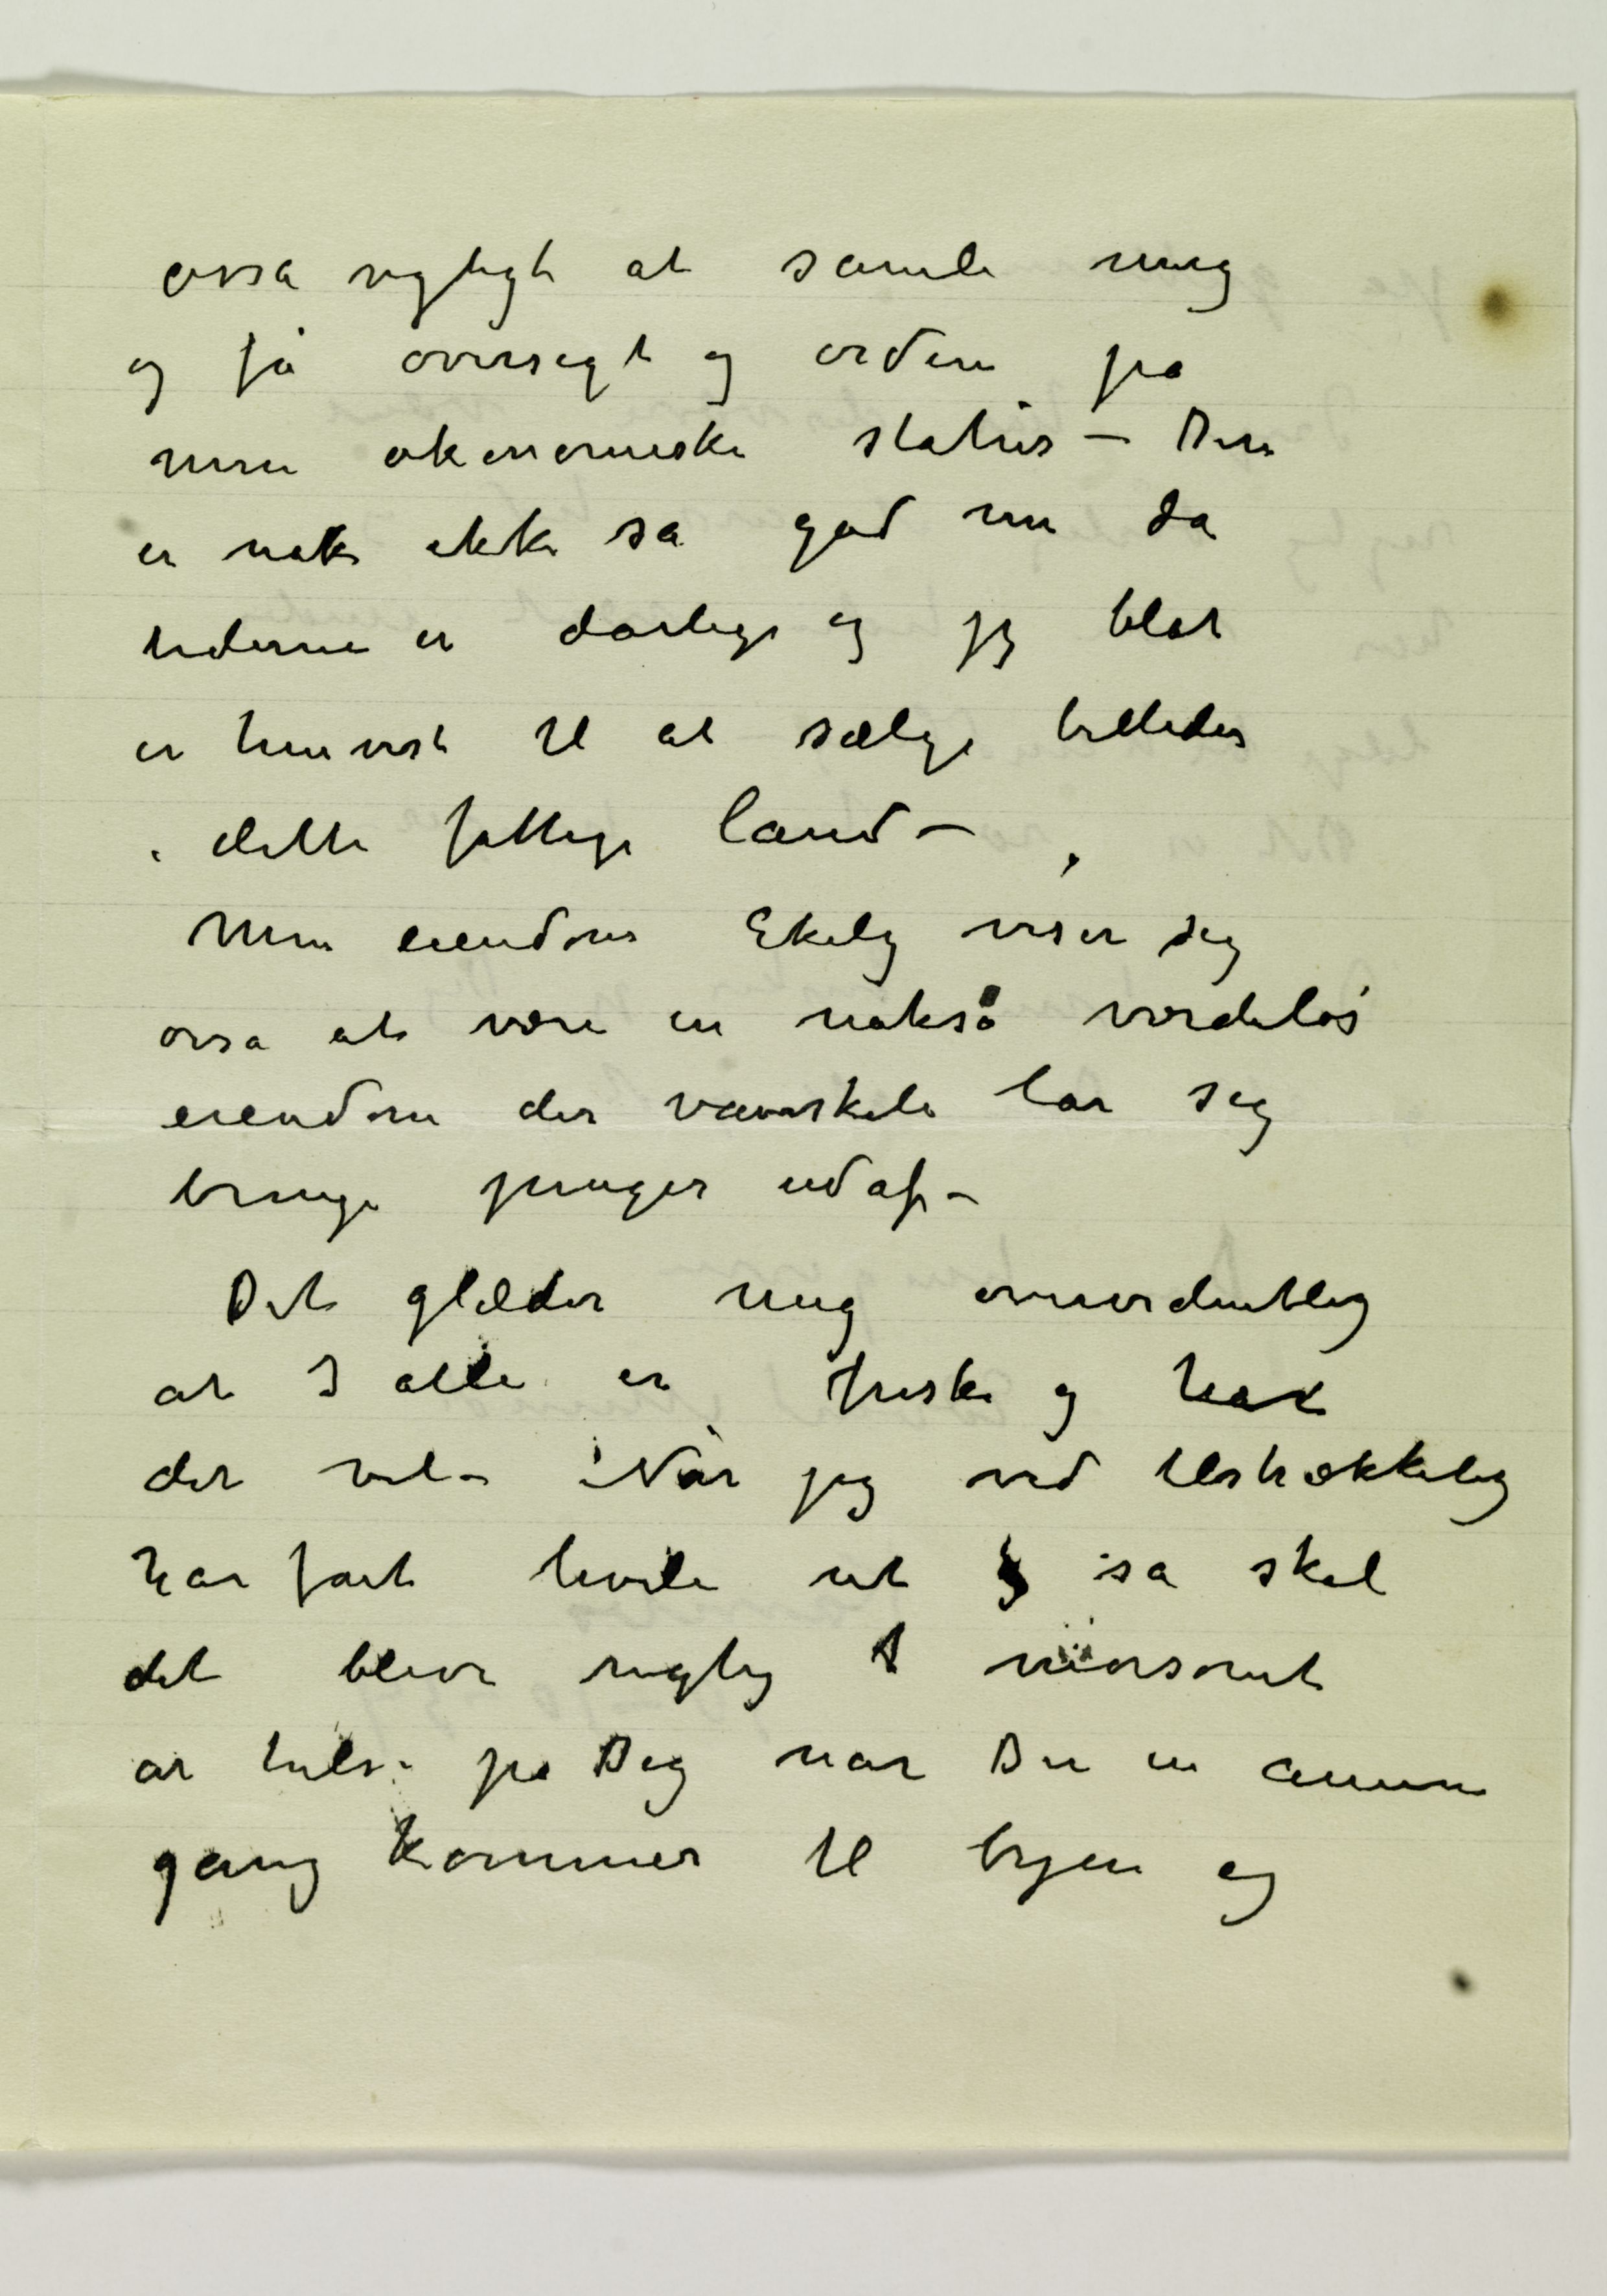 ossa vigtigt at samle mig
og få oversigt og orden på
min økonomiske status – Den
er nok ikke så god nu da
tiderne er dårlige og jeg blot
er henvist til at sælge billeder
i dette fattige land –
Min eiendom Ekely viser sig
ossa at være en nokså værdiløs
eiendom der vanskeli lar sig
bringe penger ud af –
Det glæder mig overordentlig
at I alle er friske og har
det vel – Når jeg ved tilstrækkelig
har fåt hvile ut så skal
det blive rigtig morsomt
at hilse på Deg når Du en annen
gang kommer til byen og